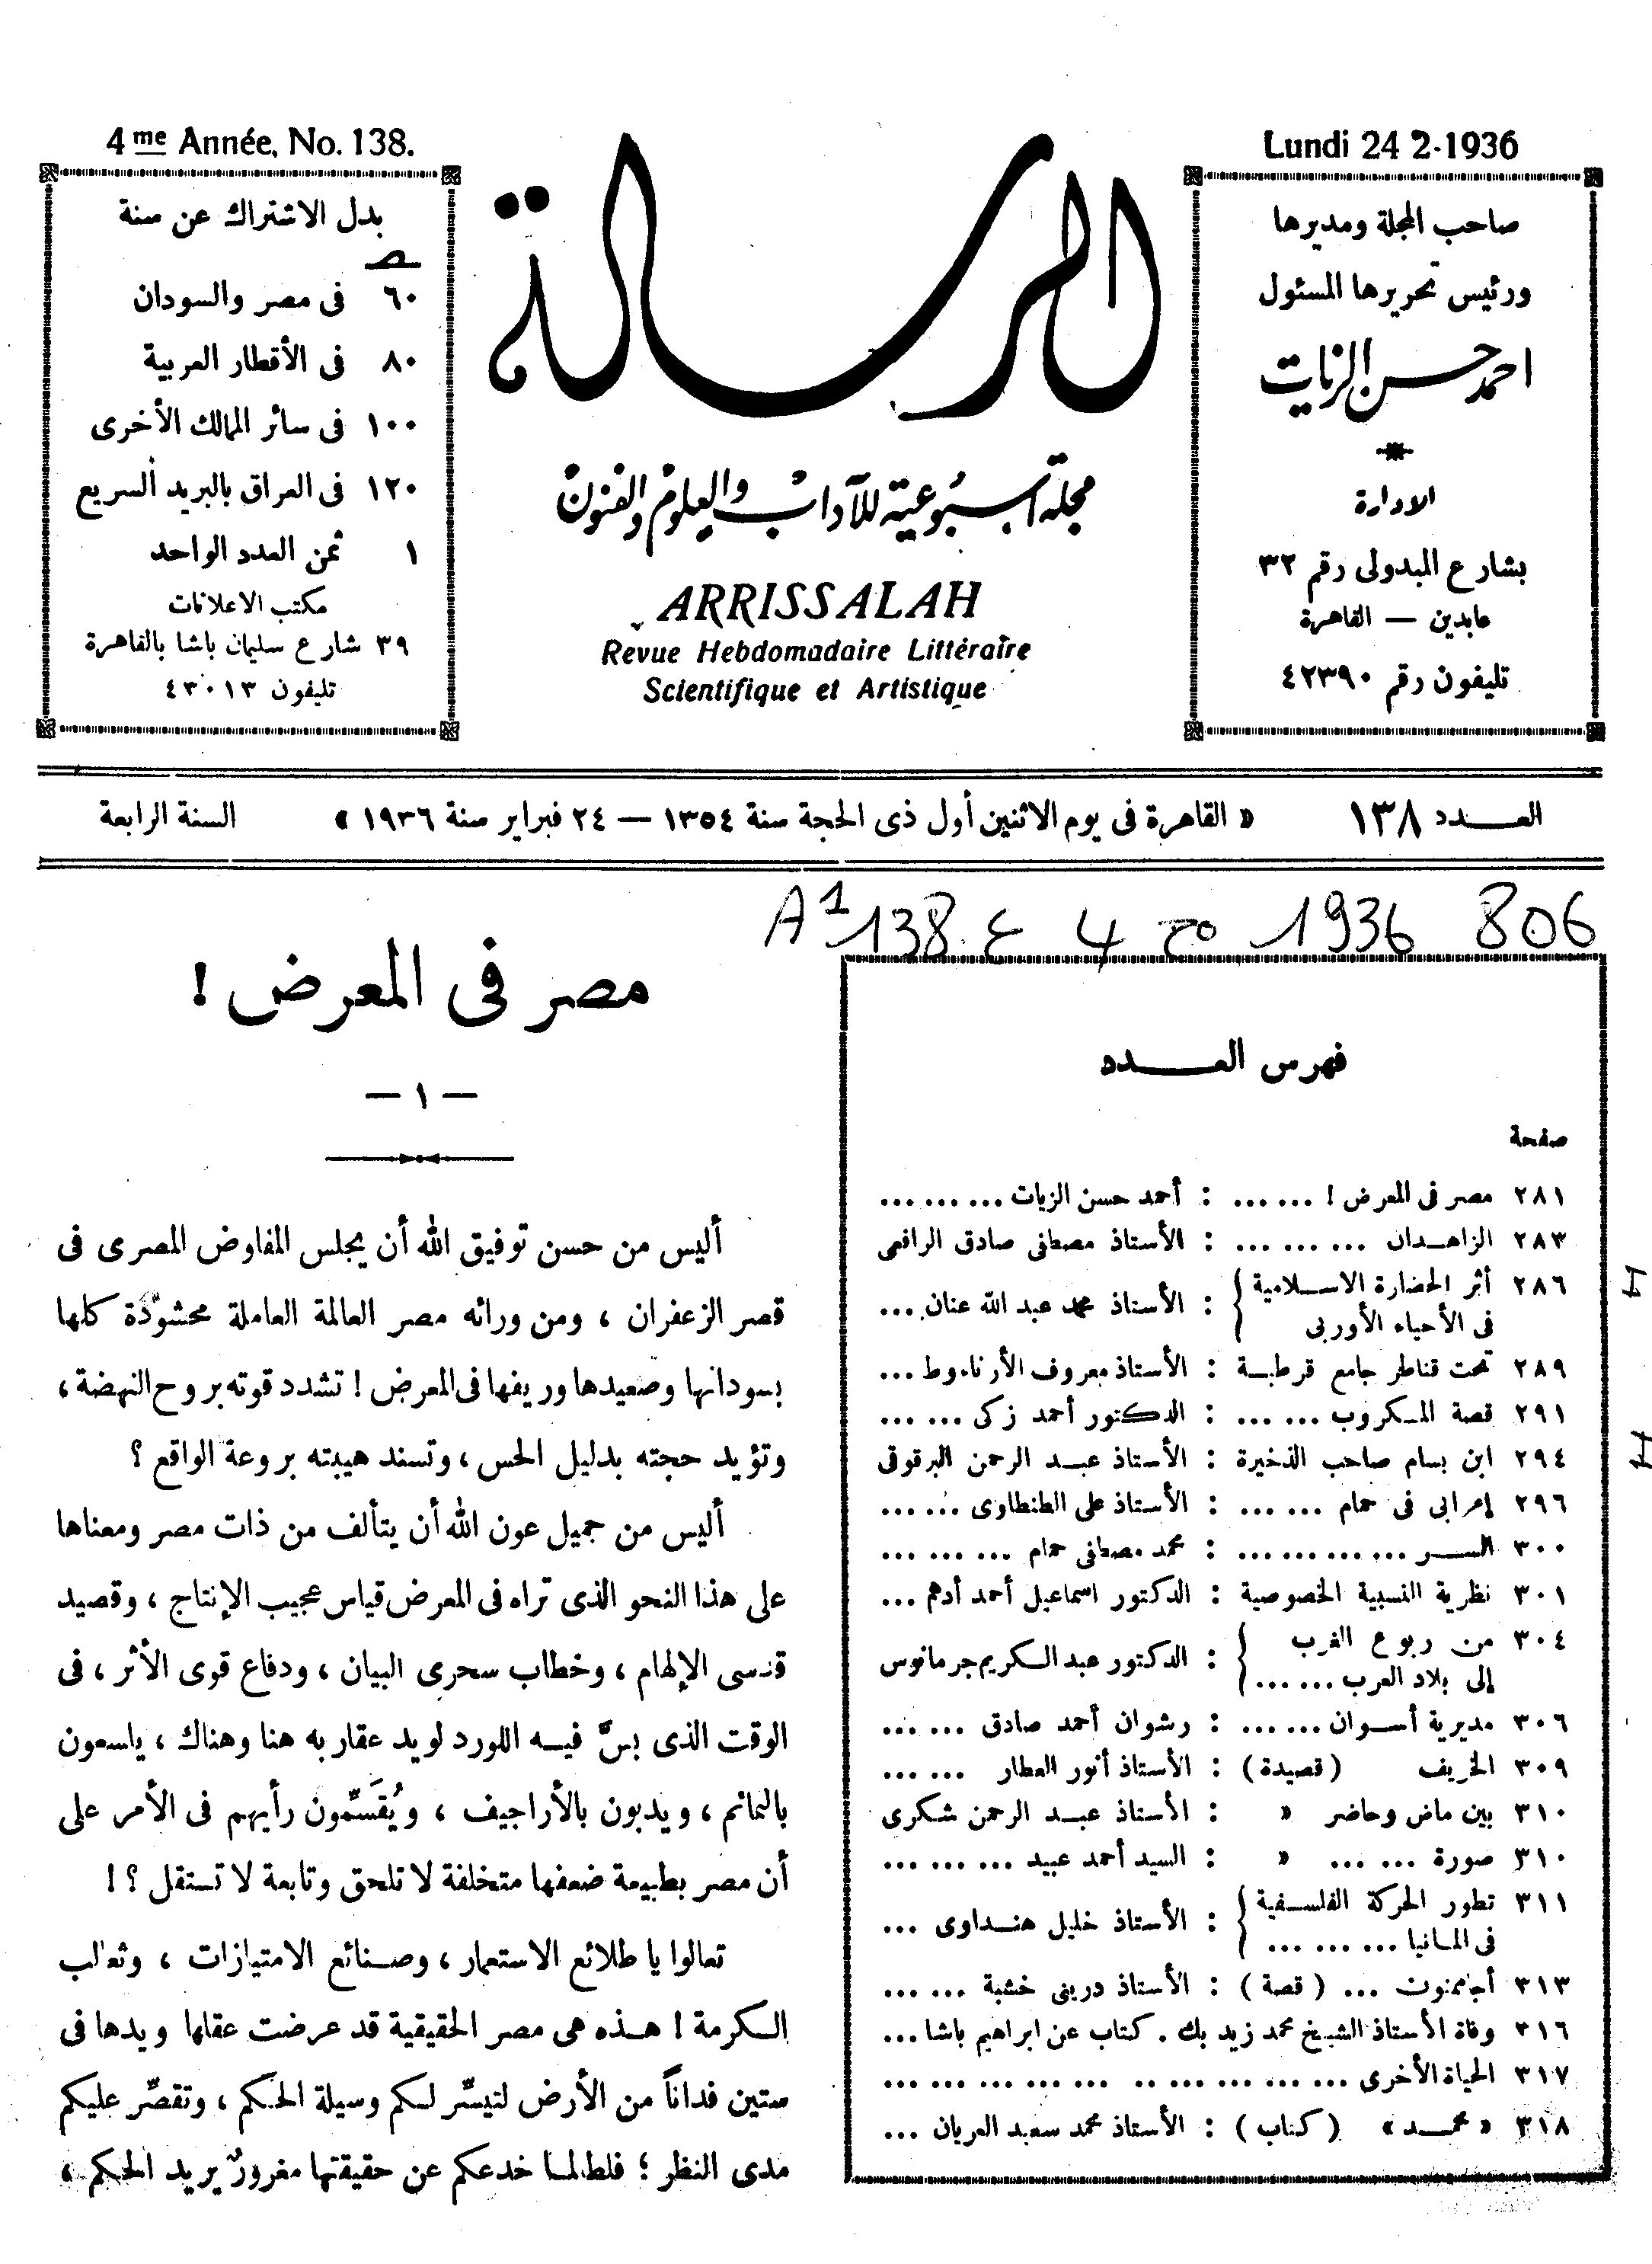 4me Année, No. 138.
Lundi 24 2-1936
صاحب المجلة ومديرها
ورئيس تحريرها المسئول
احمد حسن الزيات
الادارة
بشارع المبدولى رقم ٣٢
عابدين — القاهرة
تليفون رقم ٤٢٣٩٠
الرسالة
مجلة أسبوعية للآداب والعلوم والفنون
ARRISSALAH
Revue Hebdomadaire Littéraire
Scientifique et Artistique
بدل الاشتراك عن سنة
ص
٦٠ فى مصر والسودان
٨٠ فى الأقطار العربية
١٠٠ فى سائر الممالك الأخرى
١٢٠ فى العراق بالبريد السريع
١ ثمن العدد الواحد
مكتب الاعلانات
٣٩ شارع سليمان باشا بالقاهرة
تليفون ٤٣٠١٣
العـــدد ١٣٨ « القاهرة فى يوم الاثنين أول ذى الحجة سنة ١٣٥٤ — ٢٤ فبراير سنة ١٩٣٦ » السنة الرابعة
1936 806
فهرس العـــدد
صفحة
٢٨١ مصر فى المعرض ! ... ... : أحمد حسن الزيات ... ... ...
٢٨٣ الزاهـدان ... ... ... : الأستاذ مصطفى صادق الرافعى
٢٨٦ أثر الحضارة الاسـلامية
فى الأحياء الأوربى : الأستاذ محمد عبد الله عنان ...
٢٨٩ تحت قناطر جامع قرطبـة : الأستاذ معروف الأرناءوط ...
٢٩١ قصة المـكروب ... ... : الدكتور أحمد زكى ... ... ...
٢٩٤ ابن بسام صاحب الذخيرة : الأستاذ عبـد الرحمن البرقوقى
٢٩٦ إعرابى فى حمام ... ... : الأستاذ على الطنطاوى ... ...
٣٠٠ الســر ... ... ... ... : محمد مصطفى حمام ... ... ...
٣٠١ نظرية النسبية الخصوصية : الدكتور اسماعيل أحمد أدهم ...
٣٠٤ من ربوع الغرب
إلى بلاد العرب ... ... : الدكتور عبد الـكريم جرمانوس
٣٠٦ مديرية أسـوان ... ... : رشوان أحمد صادق ... ... ...
٣٠٩ الخريف (قصيدة) : الأستاذ أنور العطار ... ...
٣١٠ بين ماض وحاضر » : الأستاذ عبـد الرحمن شكرى
٣١٠ صورة ... ... » : السيد أحمد عبيد ... ... ...
٣١١ تطور الحركة الفلسـفية
فى المـانيا ... ... ... : الأستاذ خليل هنـداوى ...
٣١٣ أجاممنون ... (قصة) : الأستاذ درينى خشبة ... ...
٣١٦ وفاة الأستاذ الشيخ محمد زيد بك . كتاب عن ابراهيم باشا ...
٣١٧ الحياة الأخرى ... ... ... ... ... ... ... ... ... ...
٣١٨ « محمــد » (كتاب) : الأستاذ محمد سعيد العريان ...
مصر فى المعرض !
— ١ —
أليس من حسن توفيق الله أن يجلس المفاوض المصرى فى
قصر الزعفران ، ومن ورائه مصر العالمة العاملة محشودة كلها
بسودانها وصعيدها وريفها فى المعرض ! تشدد قوته بروح النهضة ،
وتؤيد حجته بدليل الحس ، وتسند هيبته بروعة الواقع ؟
أليس من جميل عون الله أن يتألف من ذات مصر ومعناها
على هذا النحو الذى تراه فى المعرض قياس عجيب الإنتاج ، وقصيد
قدسى الإلهام ، وخطاب سحرى البيان ، ودفاع قوى الأثر ، فى
الوقت الذى بسَّ فيـه اللورد لويد عقاربه هنا وهناك ، يلسعون
بالنمائم ، ويدبون بالأراجيف ، ويُقَسِّمون رأيهم فى الأمر على
أن مصر بطبيعة ضعفها متخلفة لا تلحق وتابعة لا تستقل ؟ !
تعالوا يا طلائع الاستعمار ، وصـنائع الامتيازات ، وثعالب
الـكرمة ! هـذه هى مصر الحقيقية قد عرضت عقلها ويدها فى
ستين فداناً من الأرض لتيسِّر لـكم وسيلة الحـكم ، وتقصِّر عليكم
مدى النظر ؛ فلطالمـا خدعكم عن حقيقتها مغرورٌ يريد الحكم ،